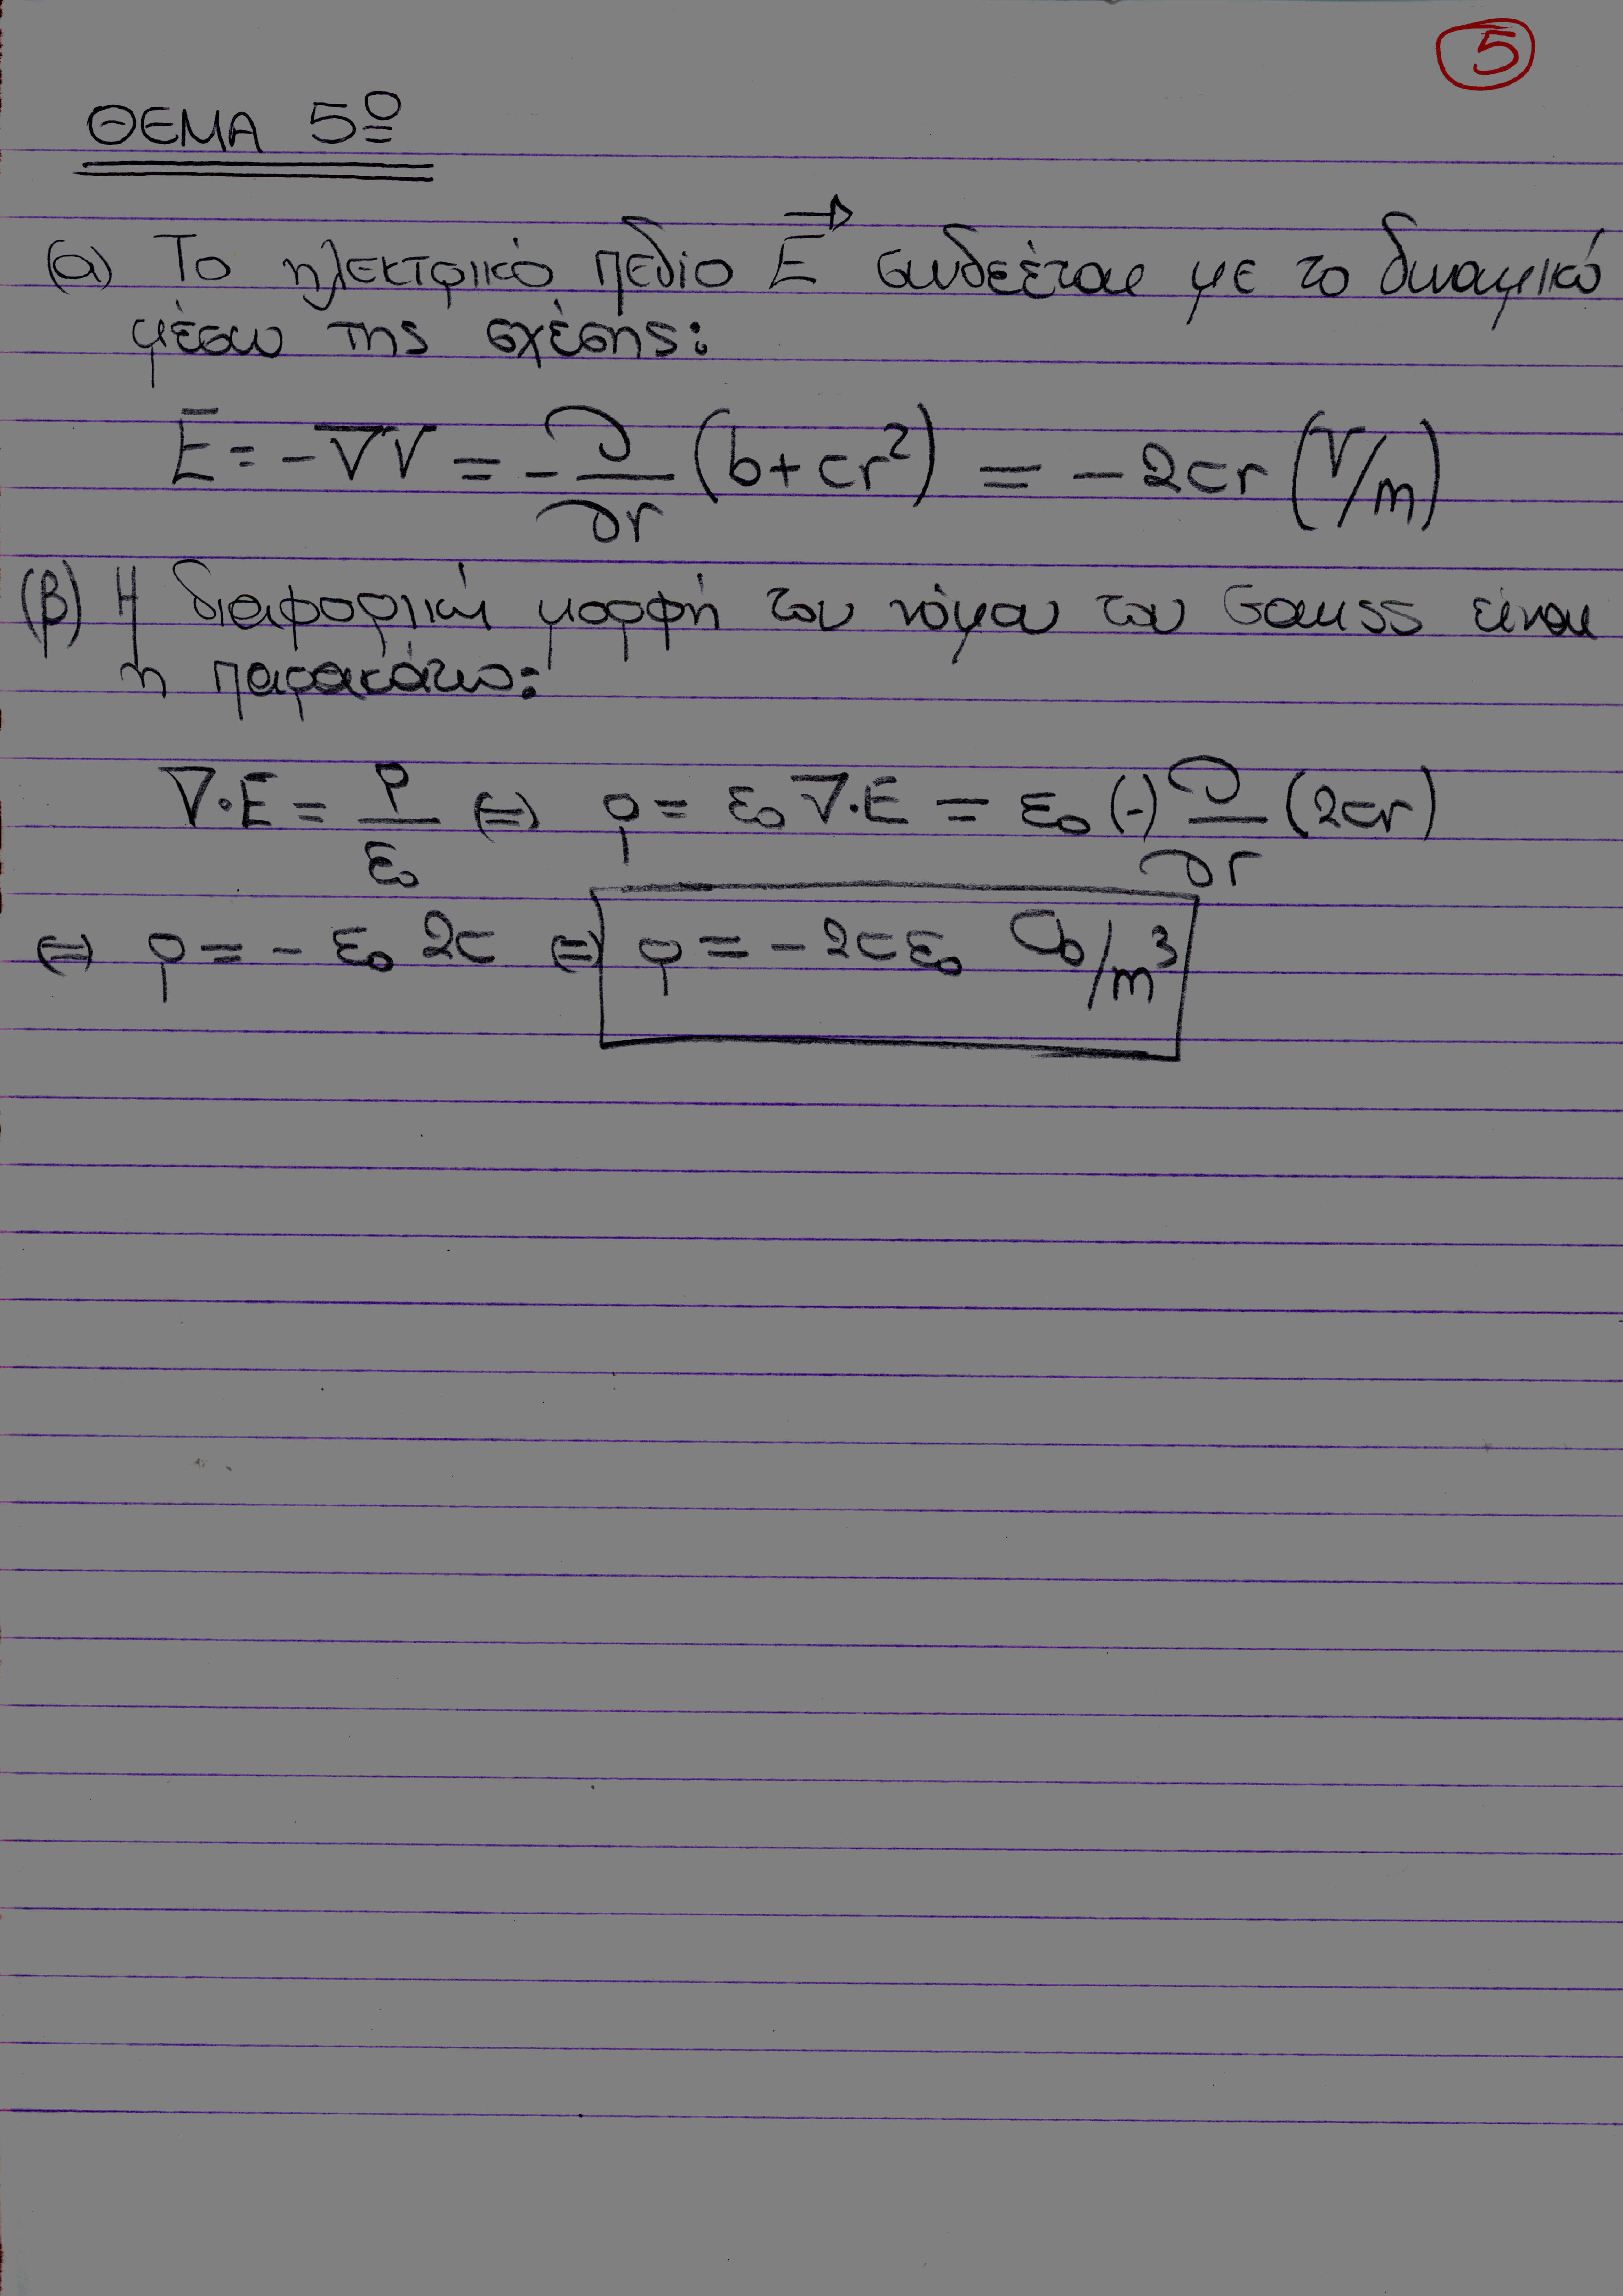 5
ΘΕΜΑ 5º
(α) Το ηλεκτρικό πεδίο E⃗ συνδέεται με το δυναμικό
μέσω της σχέσης:
Ē = -∇V = -∂/∂r (b+cr²) = -2cr (V/m)
(β) Η διαφορική μορφή του νόμου του Gauss είναι
η παρακάτω:
∇·E = ρ/ε₀ (=) ρ = ε₀ ∇·E = ε₀ (-) ∂/∂r (2cr)
(=) ρ = - ε₀ 2c (=) ρ = -2cε₀ Cb/m³